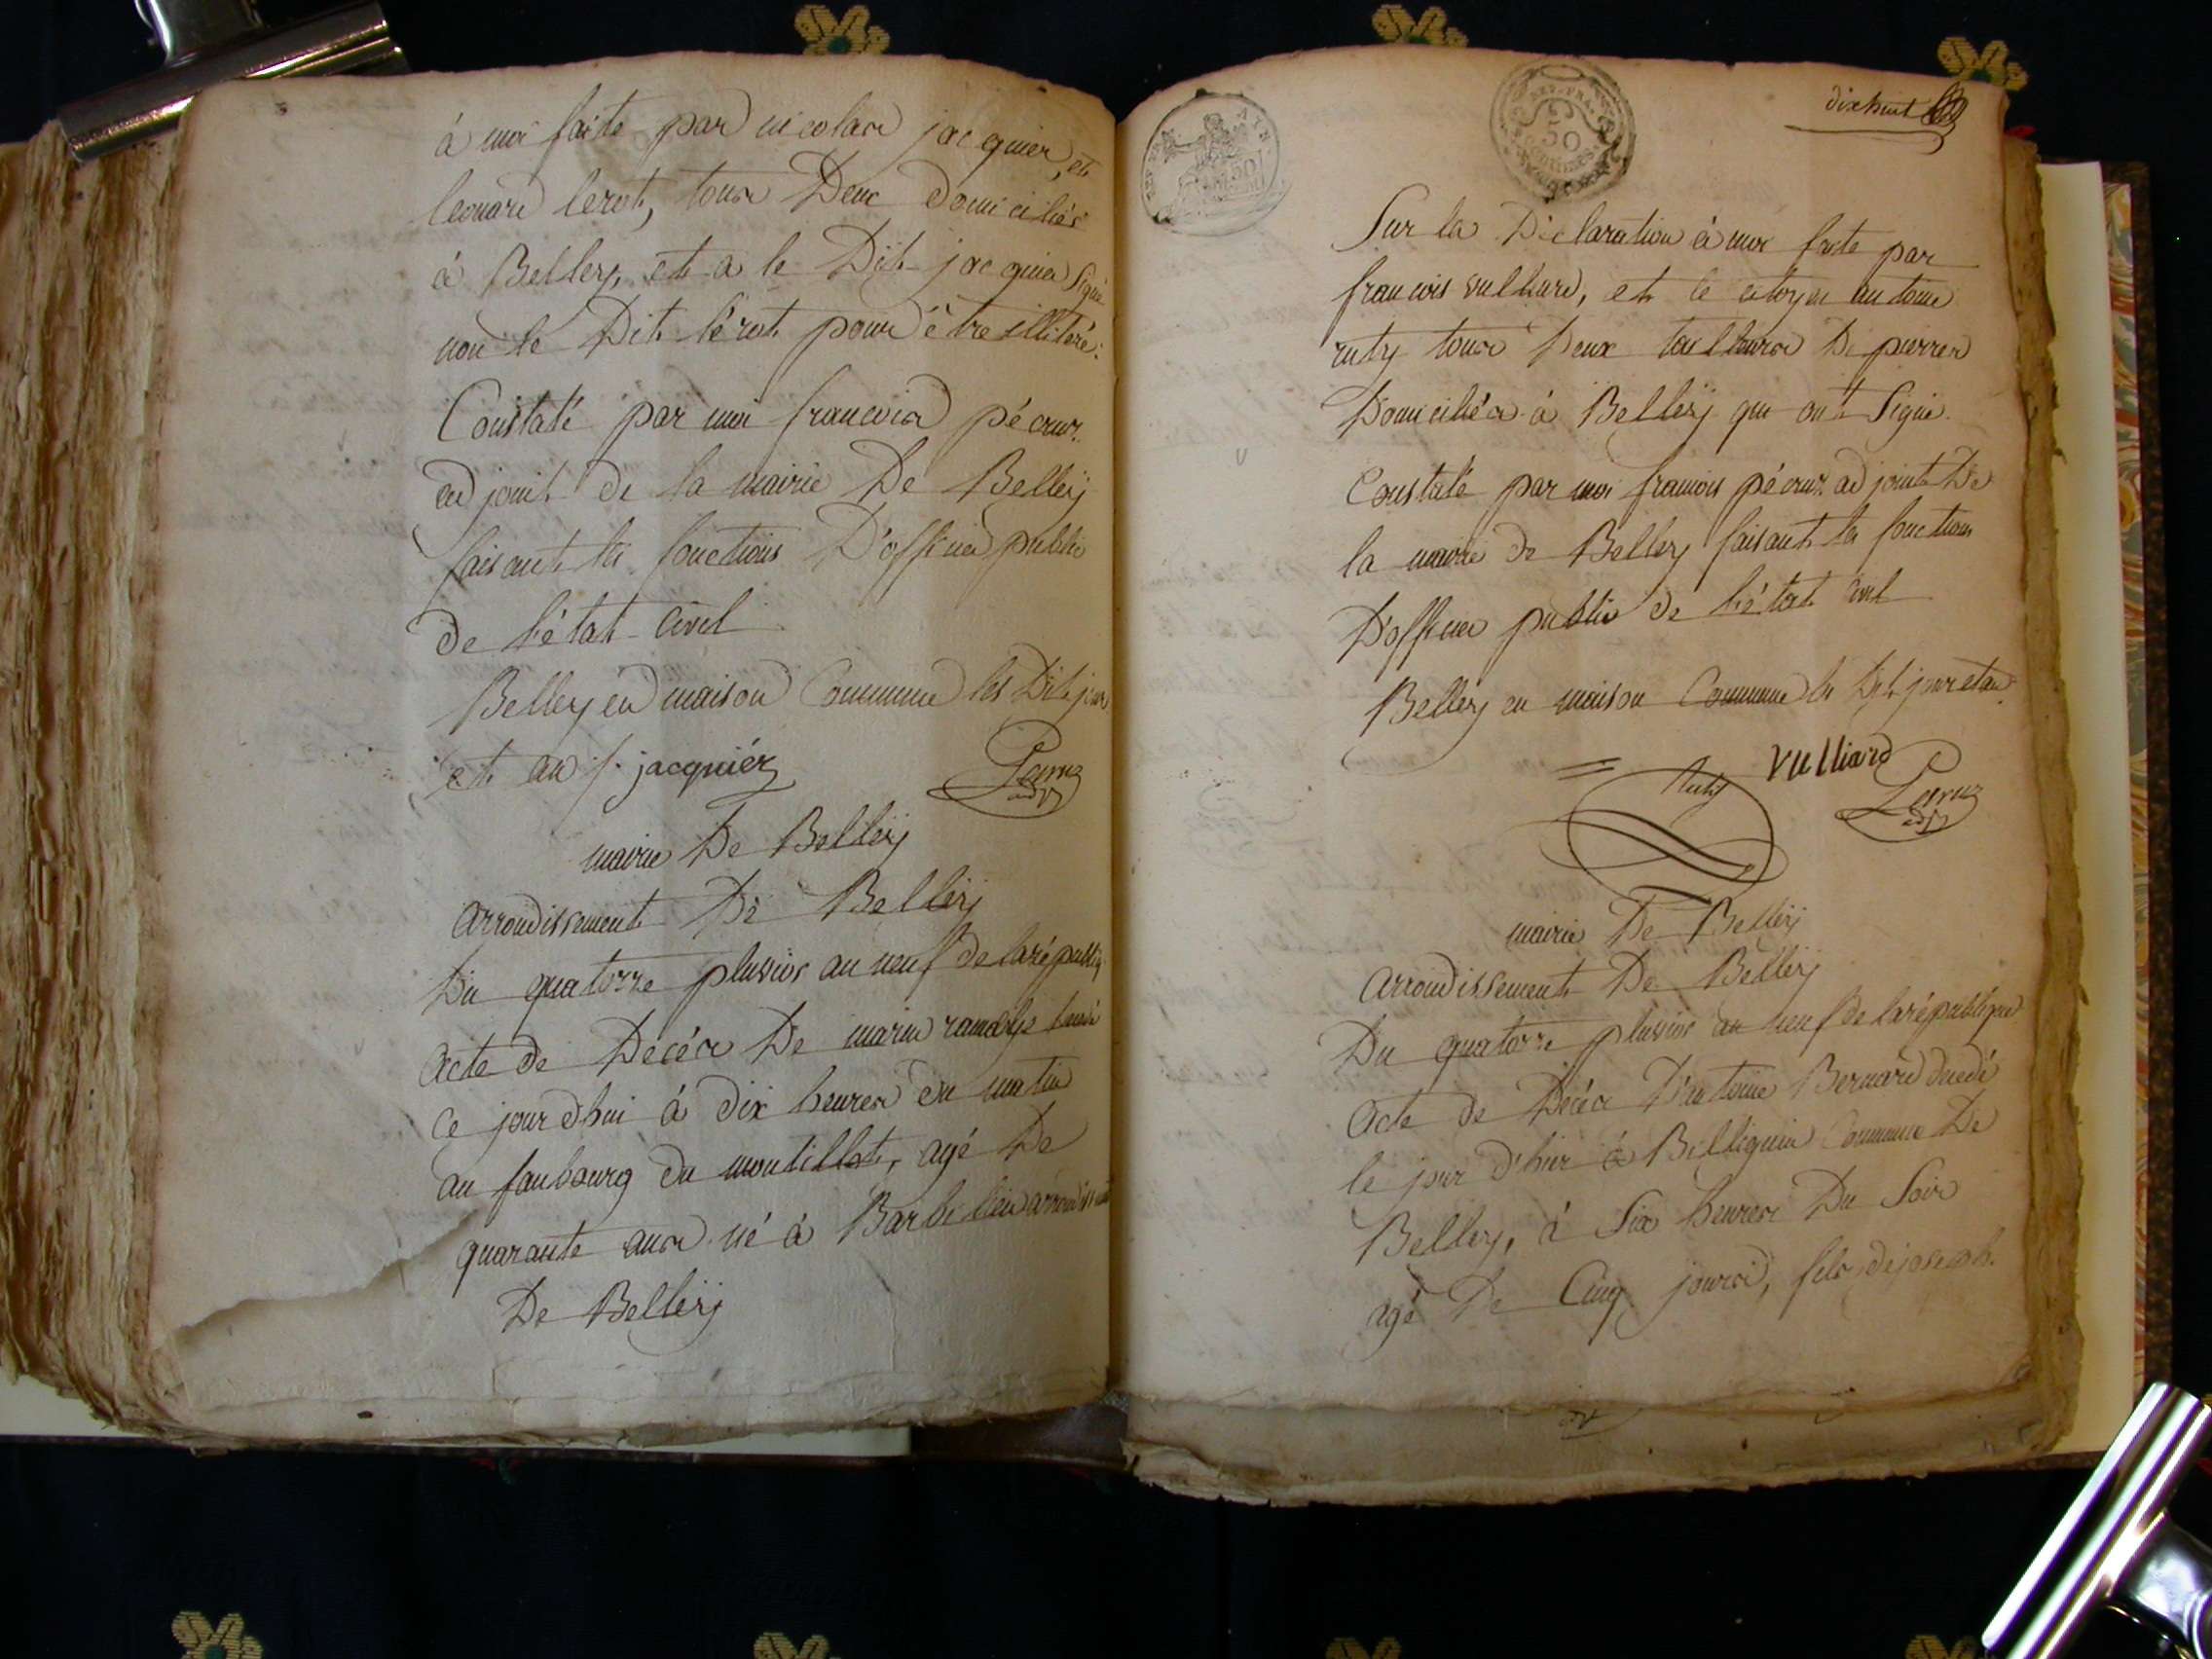 à moi faite par nicolas jacquier, et
leonard lerot, tous Deux Domiciliés
à Belley, et a le Dit jacquier Signé
non le Dit lérot pour être illiteré.
Constaté par moi francois pécruz
adjoint de la mairie De Belley
faisant les fonctions D'officier public
de l'état Civil
Belley en maison Commune les Dits jour
et an f. jacquiér Pecruz adjt
mairie De Belley
arrondissement De Belley
Du quatorze pluviose an neuf de la républiq.
Acte de Décés De marin
ce jourd'hui à dix heures du matin
au faubourg du montillet, agé De
quarante ans né à arrondissement
De Belley
dix huit
REP. FRA. AIN
50
REP. FRA.
50
Centimes
Sur la Déclaration à moi faite par
francois vulliard, et le citoyen antoine
ruty tous Deux tailleurs De pierres
Domiciliés à Belley qui ont Signé.
Constaté par moi francois pécruz adjoint De
la mairie de Belley faisant les fonctions
D'officier public de l'état Civil
Belley en maison Commune les Dits jour et an.
Ruty vulliard Pecruz adjt
mairie De Belley
arrondissement De Belley
Du quatorze pluviose an neuf de la république
Acte de Décés D'antoine Bernard décédé
le jour d'hier à Billignin Commune De
Belley, à Six heures Du Soir
agé De Cinq jours, fils de joseph.